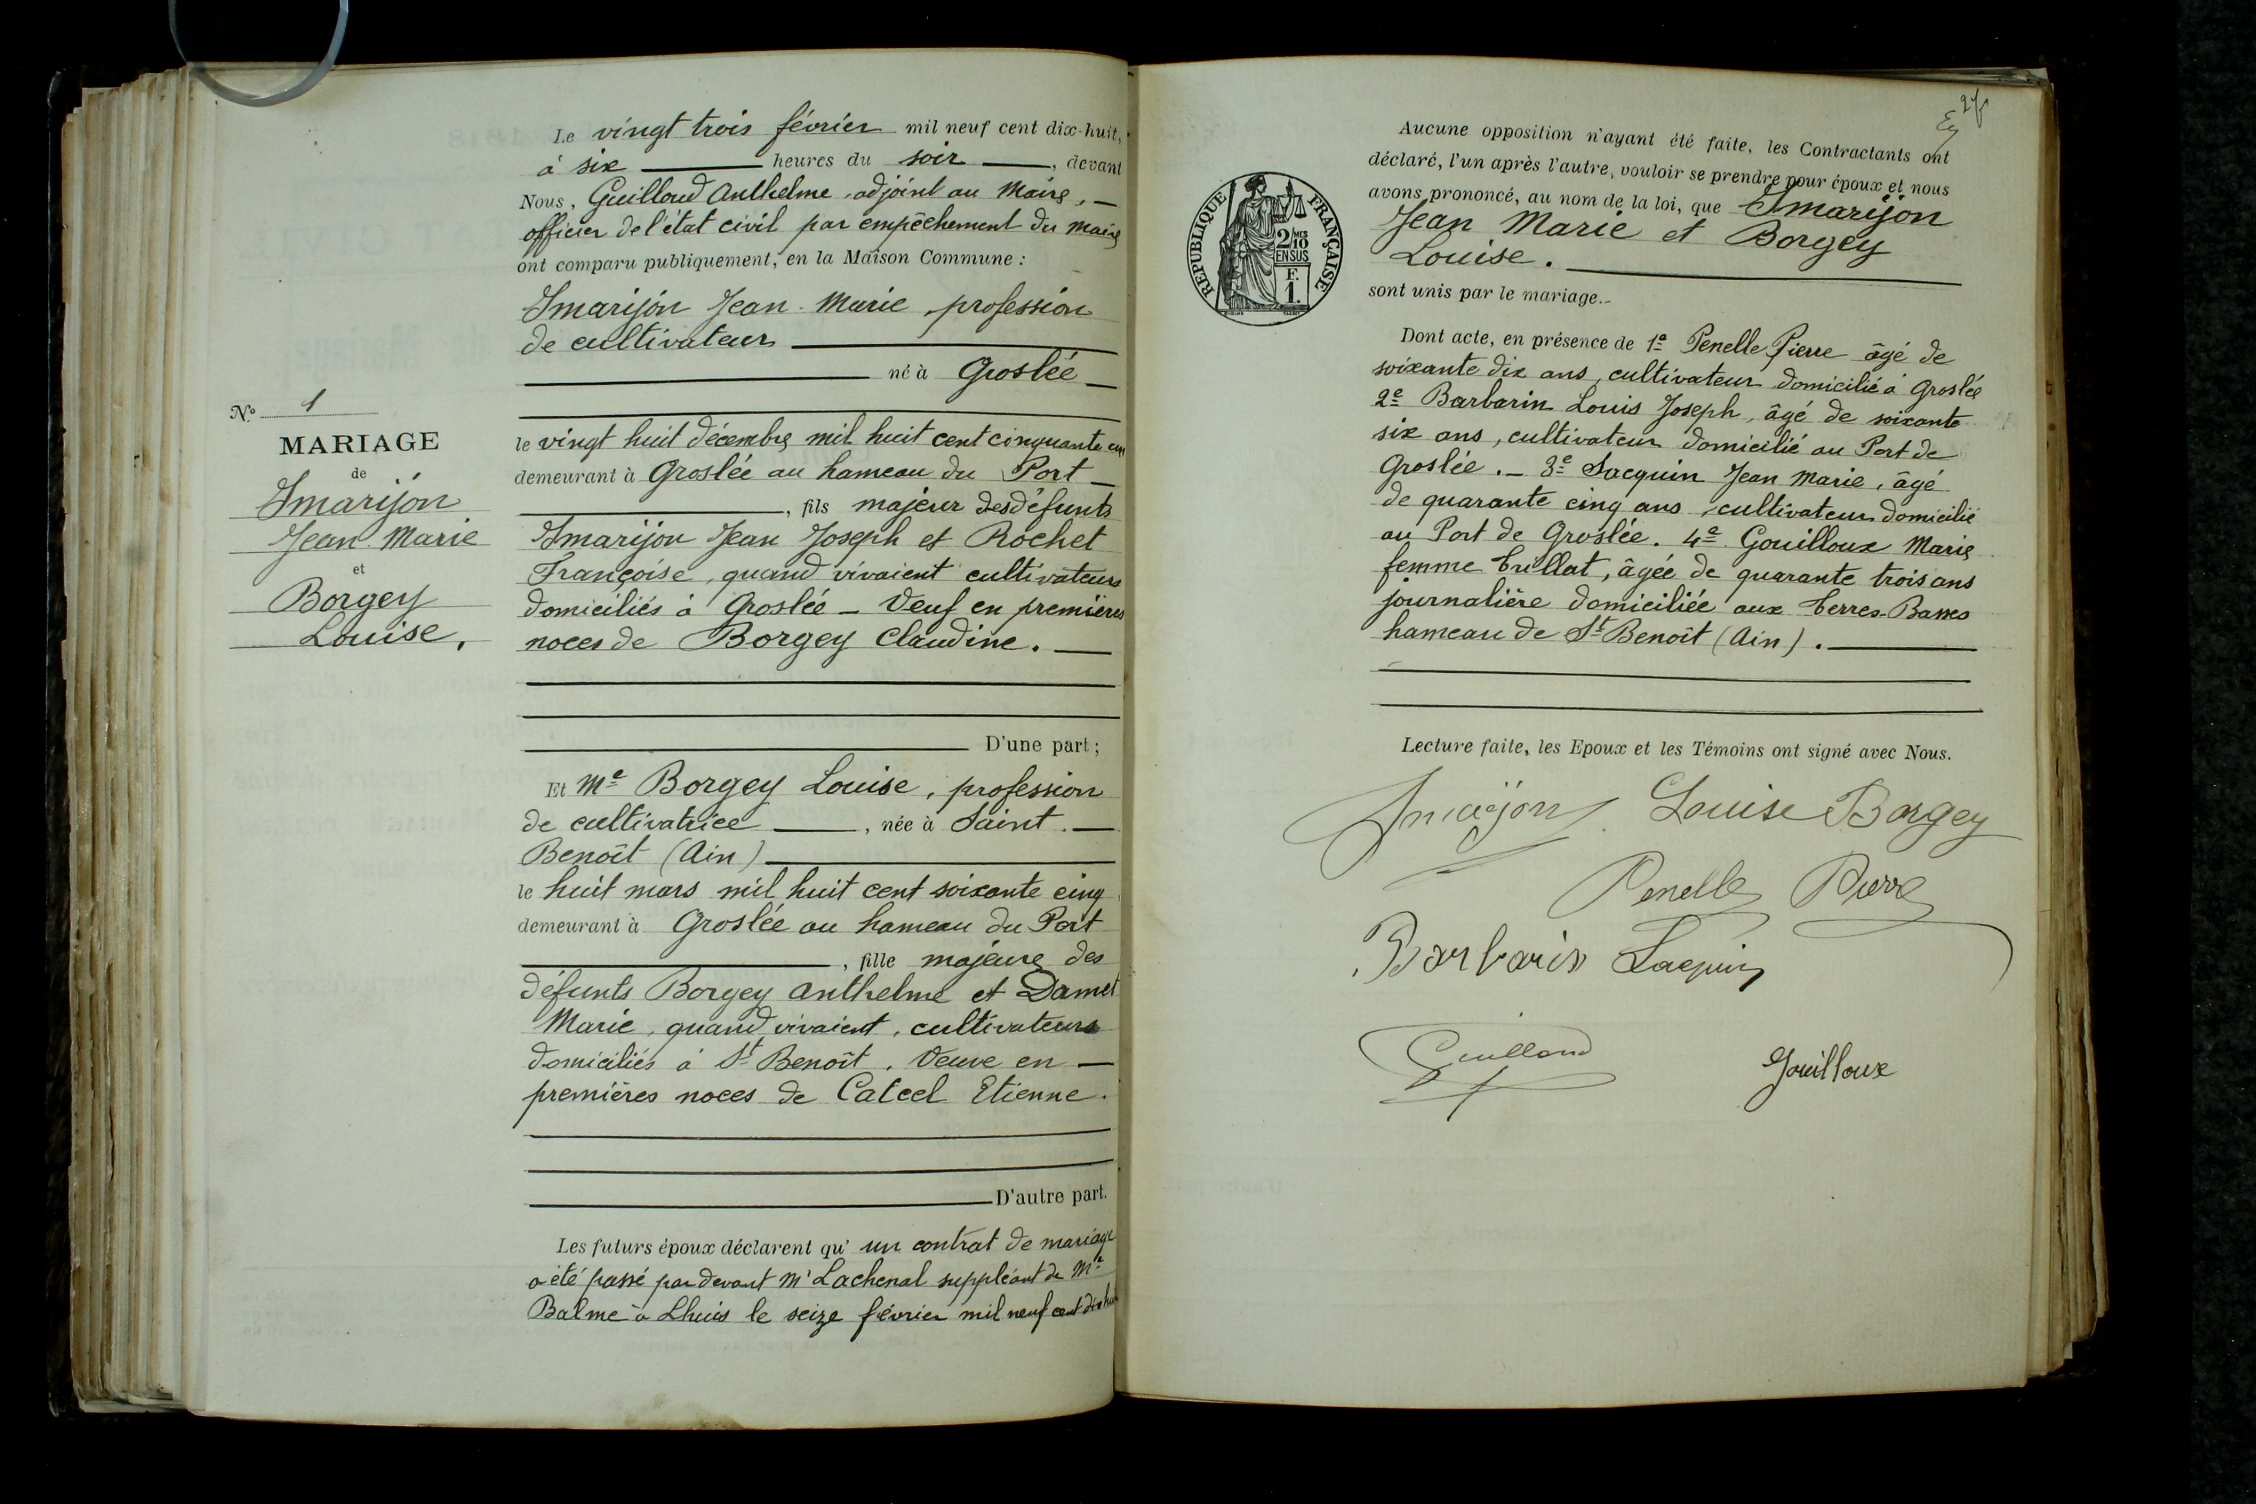 Le vingt trois février mil neuf cent dix-huit,
à six heures du soir, devant
Nous, Guilloud Anthelme, adjoint au Maire,
officier de l'état civil par empêchement du maire
ont comparu publiquement, en la Maison Commune :
Smarijon Jean Marie, profession
de cultivateur
né à Groslée
le vingt huit décembre mil huit cent cinquante un
demeurant à Groslée au hameau du Port
, fils majeur des défunts
Smarijon Jean Joseph et Rochet
Françoise, quand vivaient cultivateurs
domiciliés à Groslée - Veuf en premières
noces de Borgey Claudine.
D'une part ;
Et Me Borgey Louise, profession
de cultivatrice, née à Saint
Benoît (Ain)
le huit mars mil huit cent soixante cinq
demeurant à Groslée au hameau du Port
, fille majeure des
défunts Borgey Anthelme et Damet
Marie, quand vivaient, cultivateurs
domiciliés à St Benoît. Veuve en
premières noces de Catcel Etienne.
D'autre part.
Les futurs époux déclarent qu'un contrat de mariage
a été passé par devant Me Lachenal suppléant de Me
Balme à Lhuis le seize février mil neuf cent dix huit
No 1
MARIAGE
de
Smarijon
Jean Marie
et
Borgey
Louise.
Aucune opposition n'ayant été faite, les Contractants ont
déclaré, l'un après l'autre, vouloir se prendre pour époux et nous
avons prononcé, au nom de la loi, que Smarijon
Jean Marie et Borgey
Louise.
sont unis par le mariage.
RÉPUBLIQUE FRANÇAISE
2/10MES
EN SUS
F.
1.
Dont acte, en présence de 1e Penelle Pierre âgé de
soixante dix ans, cultivateur domicilié à Groslée
2e Barbarin Louis Joseph, âgé de soixante
six ans, cultivateur domicilié au Port de
Groslée. - 3e Sacquin Jean Marie, âgé
de quarante cinq ans, cultivateur domicilié
au Port de Groslée. 4e Gouilloux Marie
femme Trillat, âgée de quarante trois ans
journalière domiciliée aux Terres-Basses
hameau de St Benoît (Ain).
Lecture faite, les Epoux et les Témoins ont signé avec Nous.
Smarijon Louise Borgey
Penelle Pierre
Barbarin Sacquin
Guilloud Gouilloux